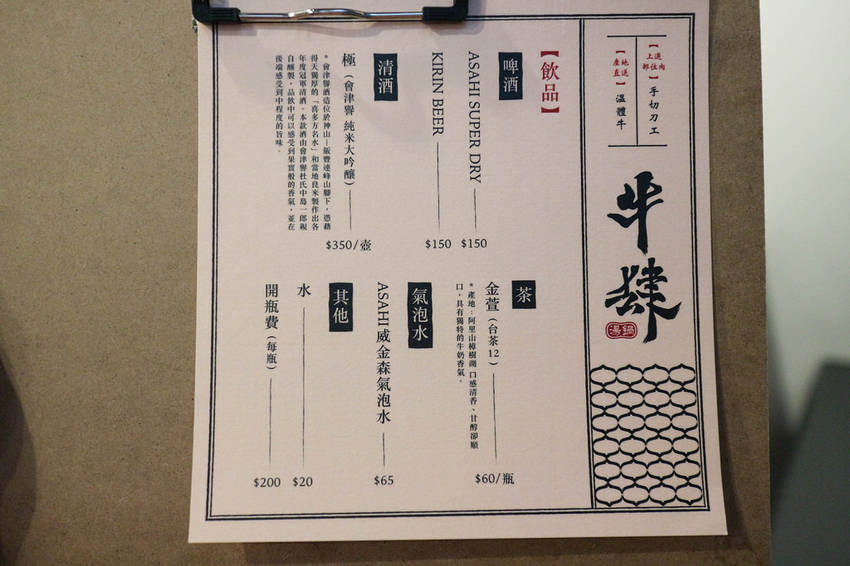 【上選部位肉】手切刀工
【產地直送】溫體牛
牛肆
湯鍋
【飲品】
啤酒
ASAHI SUPER DRY $150
KIRIN BEER $150
清酒
極(會津譽 純米大吟釀) $350/壺
*會津譽酒造位於神山—飯豐連峰山腳下,憑藉
得天獨厚的「喜多方名水」和當地良米製作出各
年度冠軍清酒。本款酒由會津譽杜氏中島一郎親
自釀製,品飲中可以感受到果實般的香氣,並在
後端感受到中程度的旨味。
茶
金萱(台茶12) $60/瓶
*產地:阿里山樟樹湖 口感清香、甘醇卻順
口,具有獨特的牛奶香氣。
氣泡水
ASAHI 威金森氣泡水 $65
其他
水 $20
開瓶費(每瓶) $200